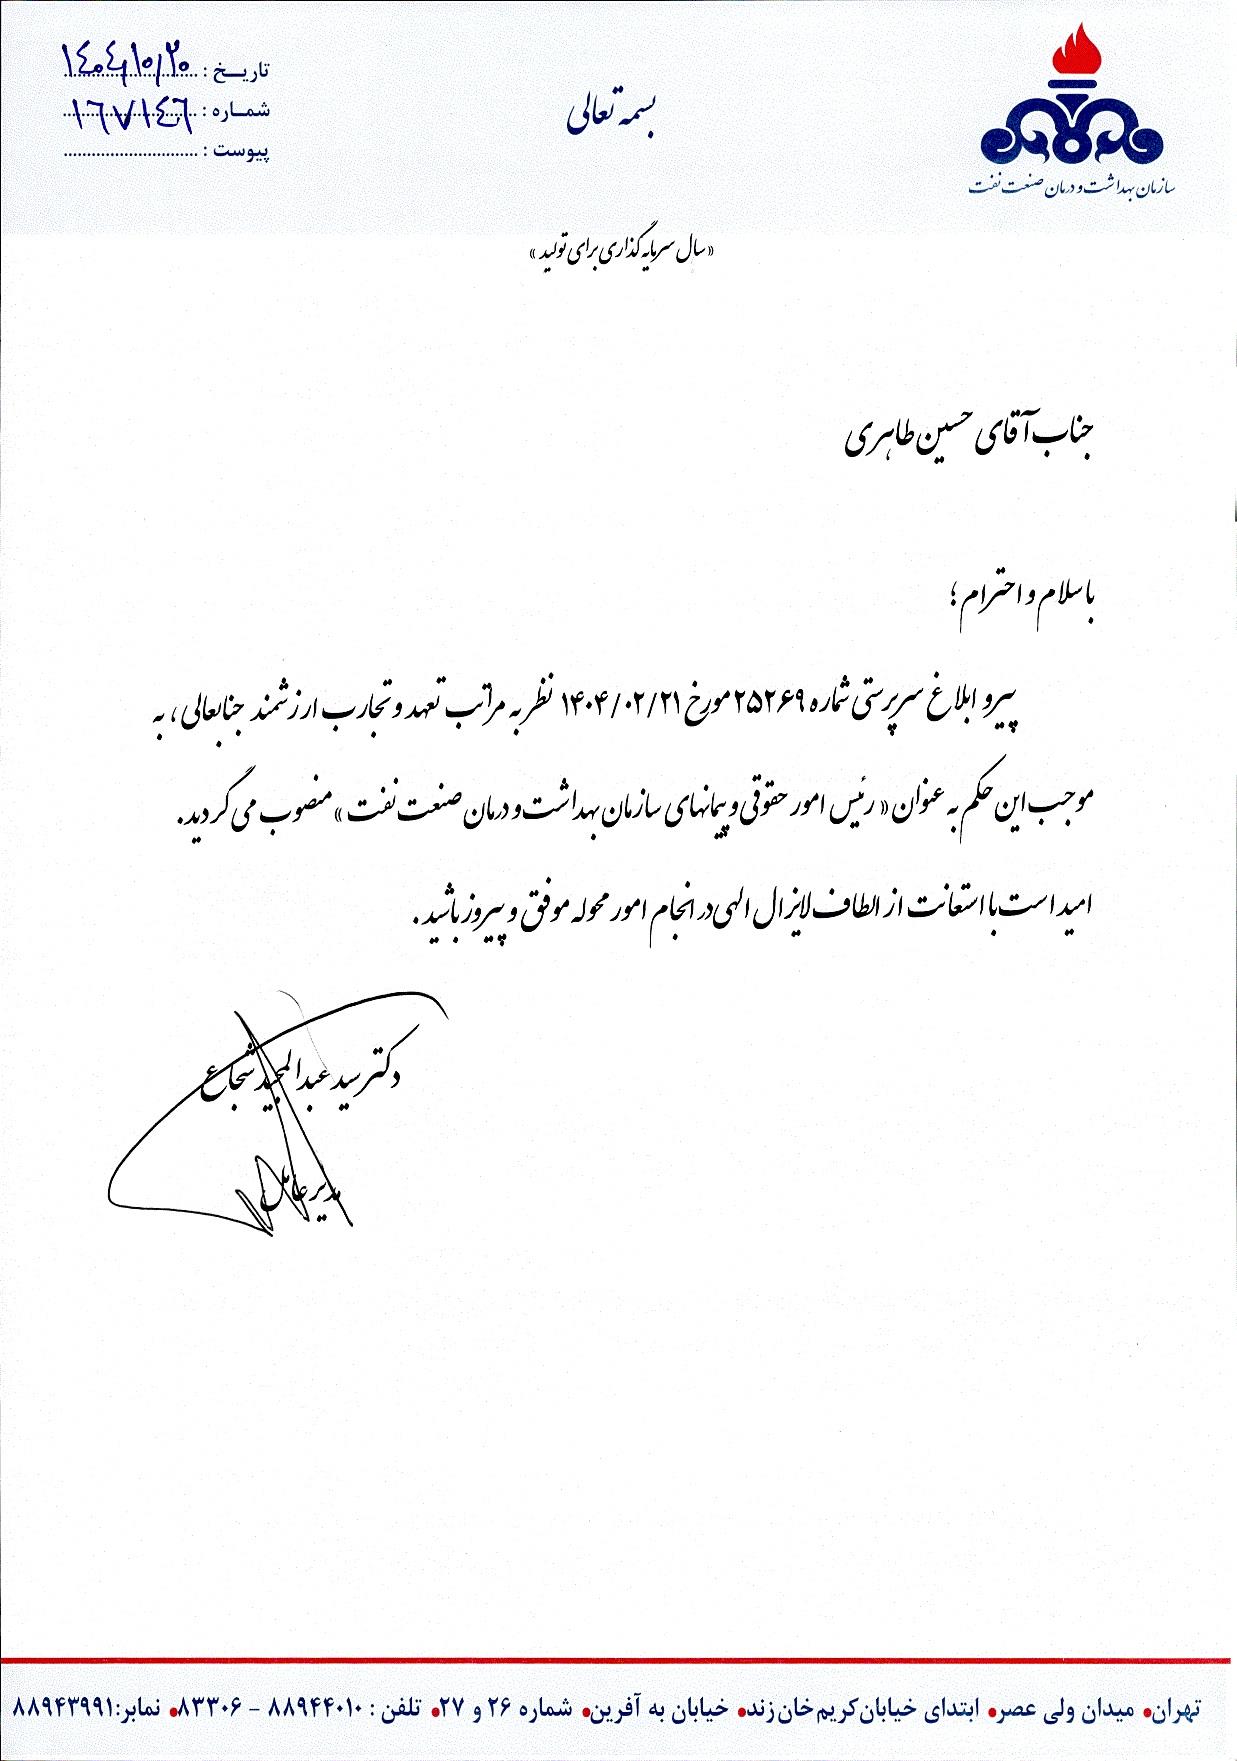 تاریخ : ۱۴۰۴/۱۰/۲۰
شماره : ۱۶۷۱۴۶
پیوست :
بسمه تعالی
سازمان بهداشت و درمان صنعت نفت
«سال سرمایه گذاری برای تولید»
جناب آقای حسین طاهری
با سلام و احترام ؛
پیرو ابلاغ سرپرستی شماره ۲۵۲۶۹ مورخ ۱۴۰۴/۰۲/۲۱ نظر به مراتب تعهد و تجارب ارزشمند جنابعالی ، به
موجب این حکم به عنوان « رئیس امور حقوقی و پیمانهای سازمان بهداشت و درمان صنعت نفت » منصوب می گردید.
امید است با استعانت از الطاف لایزال الهی در انجام امور محوله موفق و پیروز باشید .
دکتر سید عبدالمجید شجاع
مدیر عامل
تهران• میدان ولی عصر• ابتدای خیابان کریم خان زند• خیابان به آفرین• شماره ۲۶ و ۲۷• تلفن : ۸۸۹۴۴۰۱۰ - ۸۳۳۰۶• نمابر:۸۸۹۴۳۹۹۱